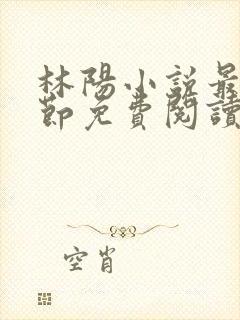 林陽小說最
節免費閱讀
空肖